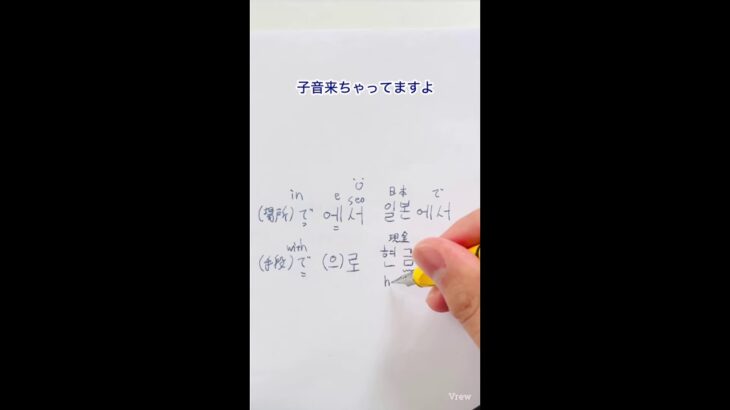 子音来ちゃってますよ
in e seo 日本 で
(場所)で 에서 일본에서
with 現金
(手段)で (으)로 현금
h
Vrew